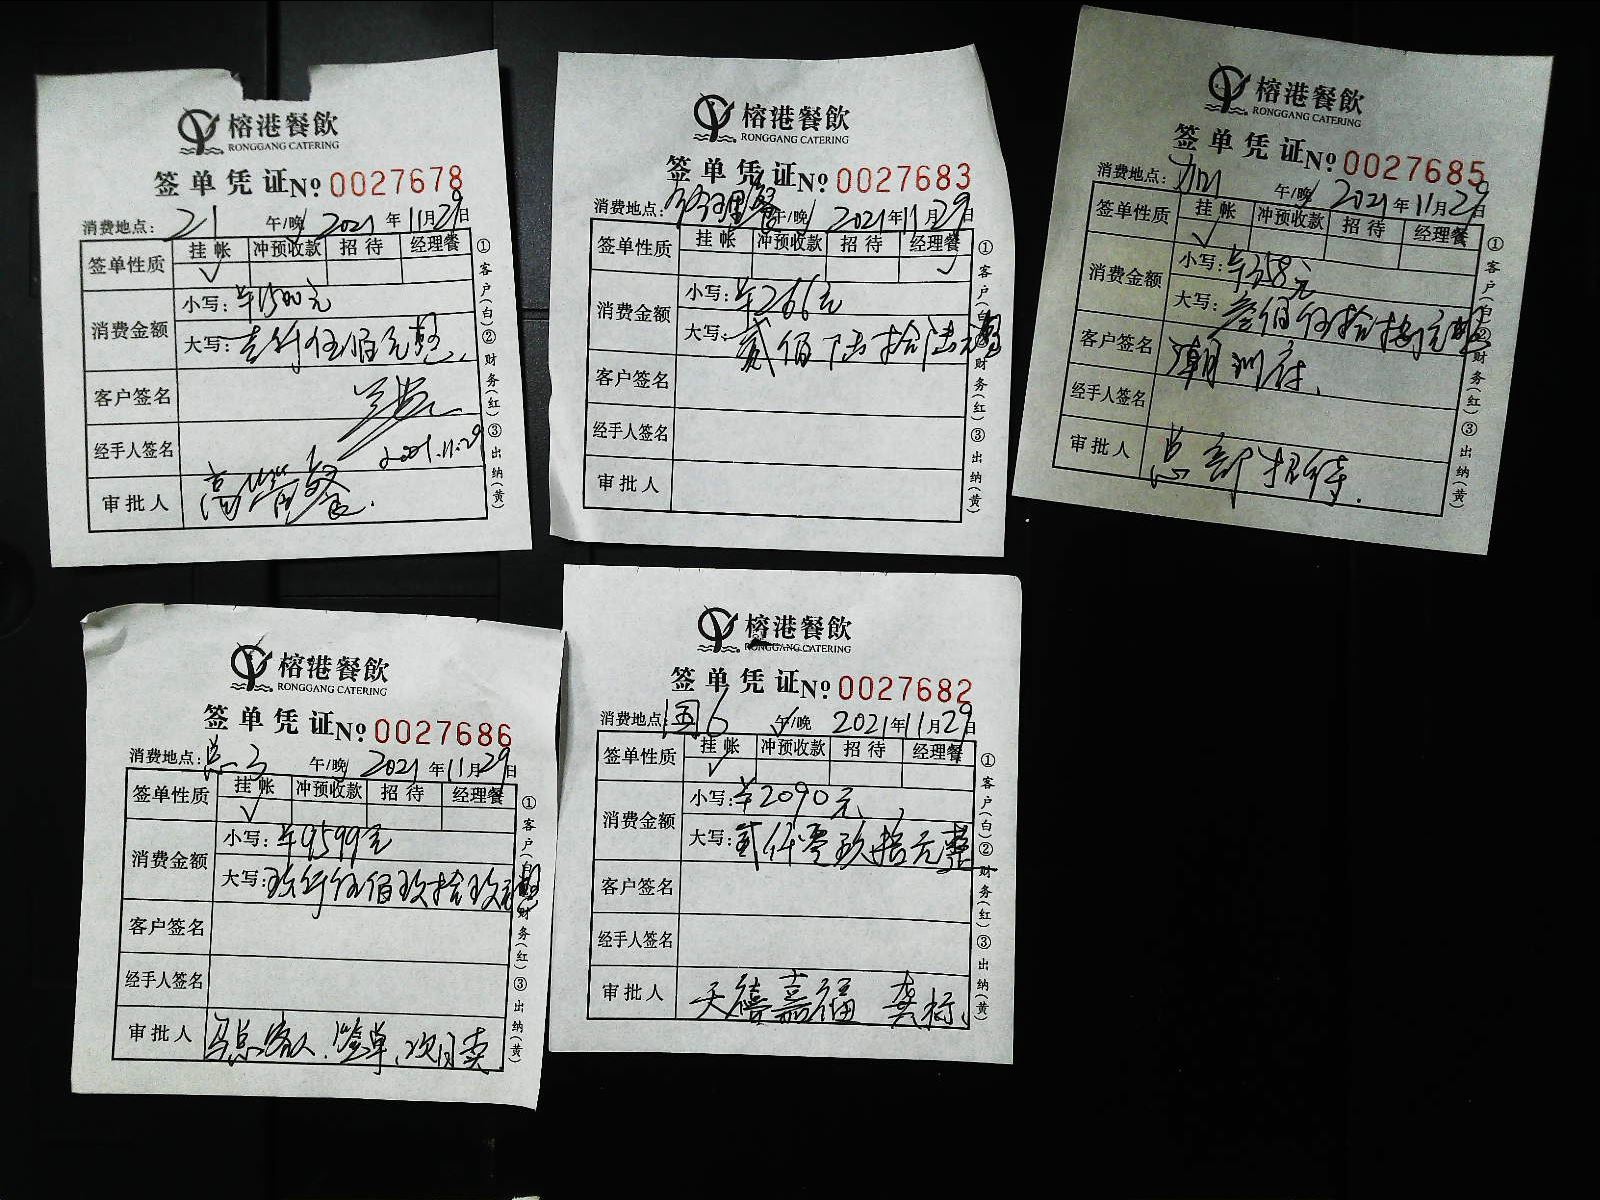 榕港餐飲
RONGGANG CATERING
签单凭证№0027678
消费地点：21 午/晚 2021年11月29日
签单性质 挂帐 冲预收款 招待 经理餐
√
消费金额 小写：¥1500元
大写：壹仟伍佰元整
客户签名
经手人签名 2021.11.29
审批人 高管餐.
①客户(白)②财务(红)③出纳(黄)
榕港餐飲
RONGGANG CATERING
签单凭证№0027683
消费地点：经理餐 午/晚 2021年11月29日
签单性质 挂帐 冲预收款 招待 经理餐
√
消费金额 小写：¥266元
大写：贰佰陆拾陆元整
客户签名
经手人签名
审批人
①客户(白)②财务(红)③出纳(黄)
榕港餐飲
RONGGANG CATERING
签单凭证№0027685
消费地点： 午/晚 2021年11月29日
签单性质 挂帐 冲预收款 招待 经理餐
√
消费金额 小写：¥358元
大写：叁佰伍拾捌元整
客户签名 潮州府、
经手人签名
审批人 总部招待.
①客户(白)②财务(红)③出纳(黄)
榕港餐飲
RONGGANG CATERING
签单凭证№0027686
消费地点：总3 午/晚 2021年11月29日
签单性质 挂帐 冲预收款 招待 经理餐
√
消费金额 小写：¥9599元
大写：玖仟伍佰玖拾玖元整
客户签名
经手人签名
审批人 马总客人、签单、次日卖
①客户(白)②财务(红)③出纳(黄)
榕港餐飲
RONGGANG CATERING
签单凭证№0027682
消费地点：国6 午/晚 2021年11月29日
签单性质 挂帐 冲预收款 招待 经理餐
√
消费金额 小写：¥2090元
大写：贰仟零玖拾元整
客户签名
经手人签名
审批人 天禧嘉福 龚标、
①客户(白)②财务(红)③出纳(黄)